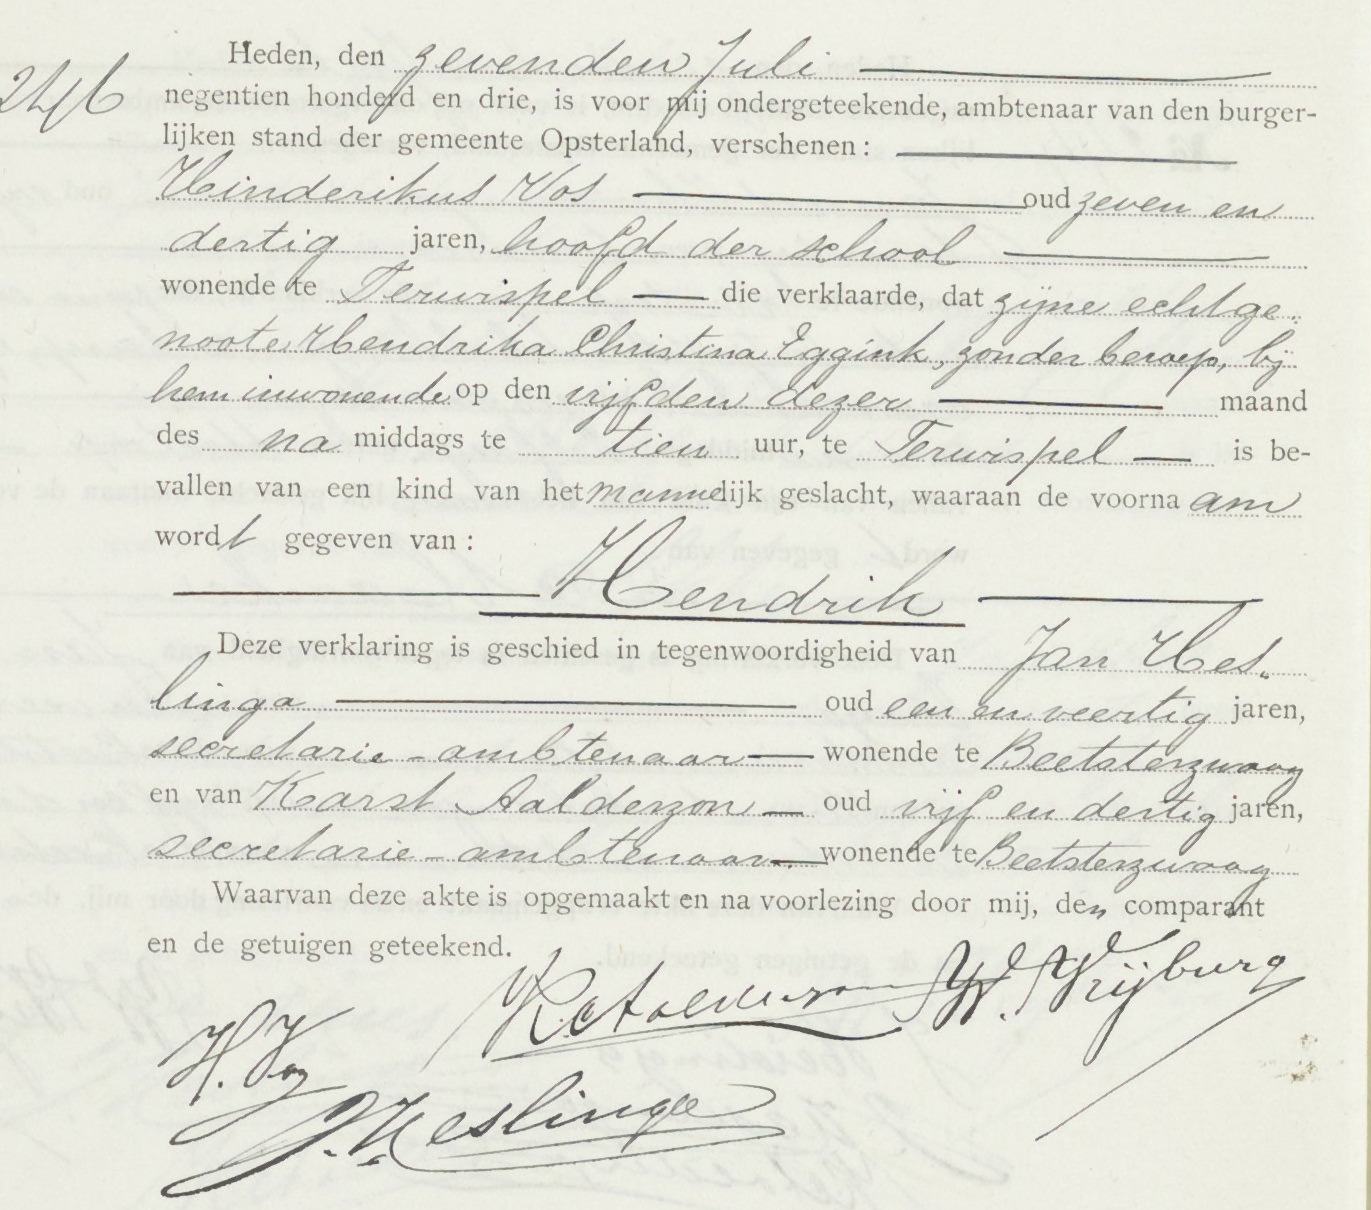 246
Heden, den zevenden Juli
negentien honderd en drie, is voor mij ondergeteekende, ambtenaar van den burger-
lijken stand der gemeente Opsterland, verschenen :
Hinderikus Vos oud zeven en
dertig jaren, hoofd der school
wonende te Terwispel die verklaarde, dat zijne echtge-
noote Hendrika Christina Eggink, zonder beroep, bij
hem inwonende op den vijfden dezer maand
des na middags te tien uur, te Terwispel is be-
vallen van een kind van het mannelijk geslacht, waaraan de voorna am
wordt gegeven van :
Hendrik
Deze verklaring is geschied in tegenwoordigheid van Jan Hes-
linga oud een en veertig jaren,
secretarie-ambtenaar wonende te Beetsterzwaag
en van Karst Aalderzon oud vijf en dertig jaren,
secretarie-ambtenaar wonende te Beetsterzwaag
Waarvan deze akte is opgemaakt en na voorlezing door mij, den comparant
en de getuigen geteekend.
W. Wrijburg
H. Vos
J. Heslinga